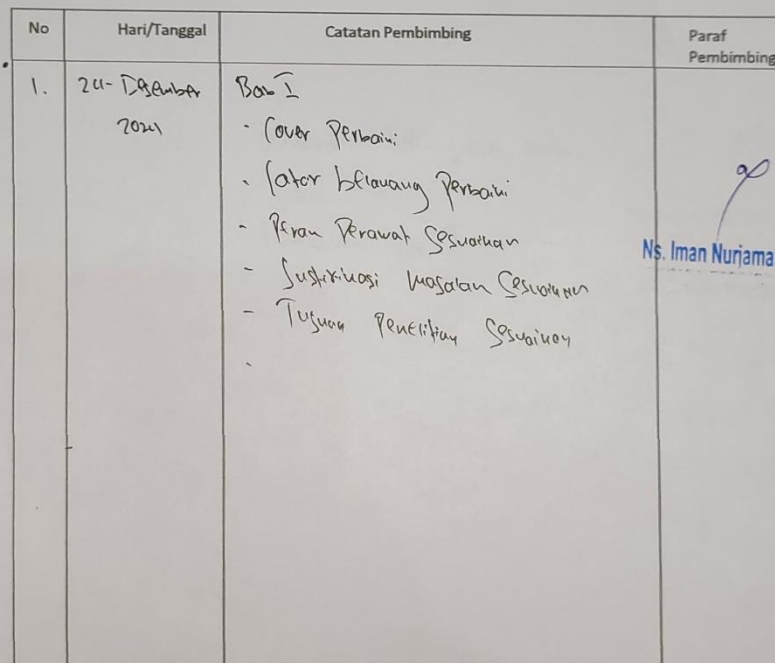 No Hari/Tanggal Catatan Pembimbing Paraf Pembimbing
1. 24- Desember 2024 Bab I
- Cover Perbaiki
- Latar belakang Perbaiki
- Peran Perawat Sesuaikan
- Justifikasi Masalah Sesuaikan
- Tujuan Penelitian Sesuaikan
Ns. Iman Nurjama